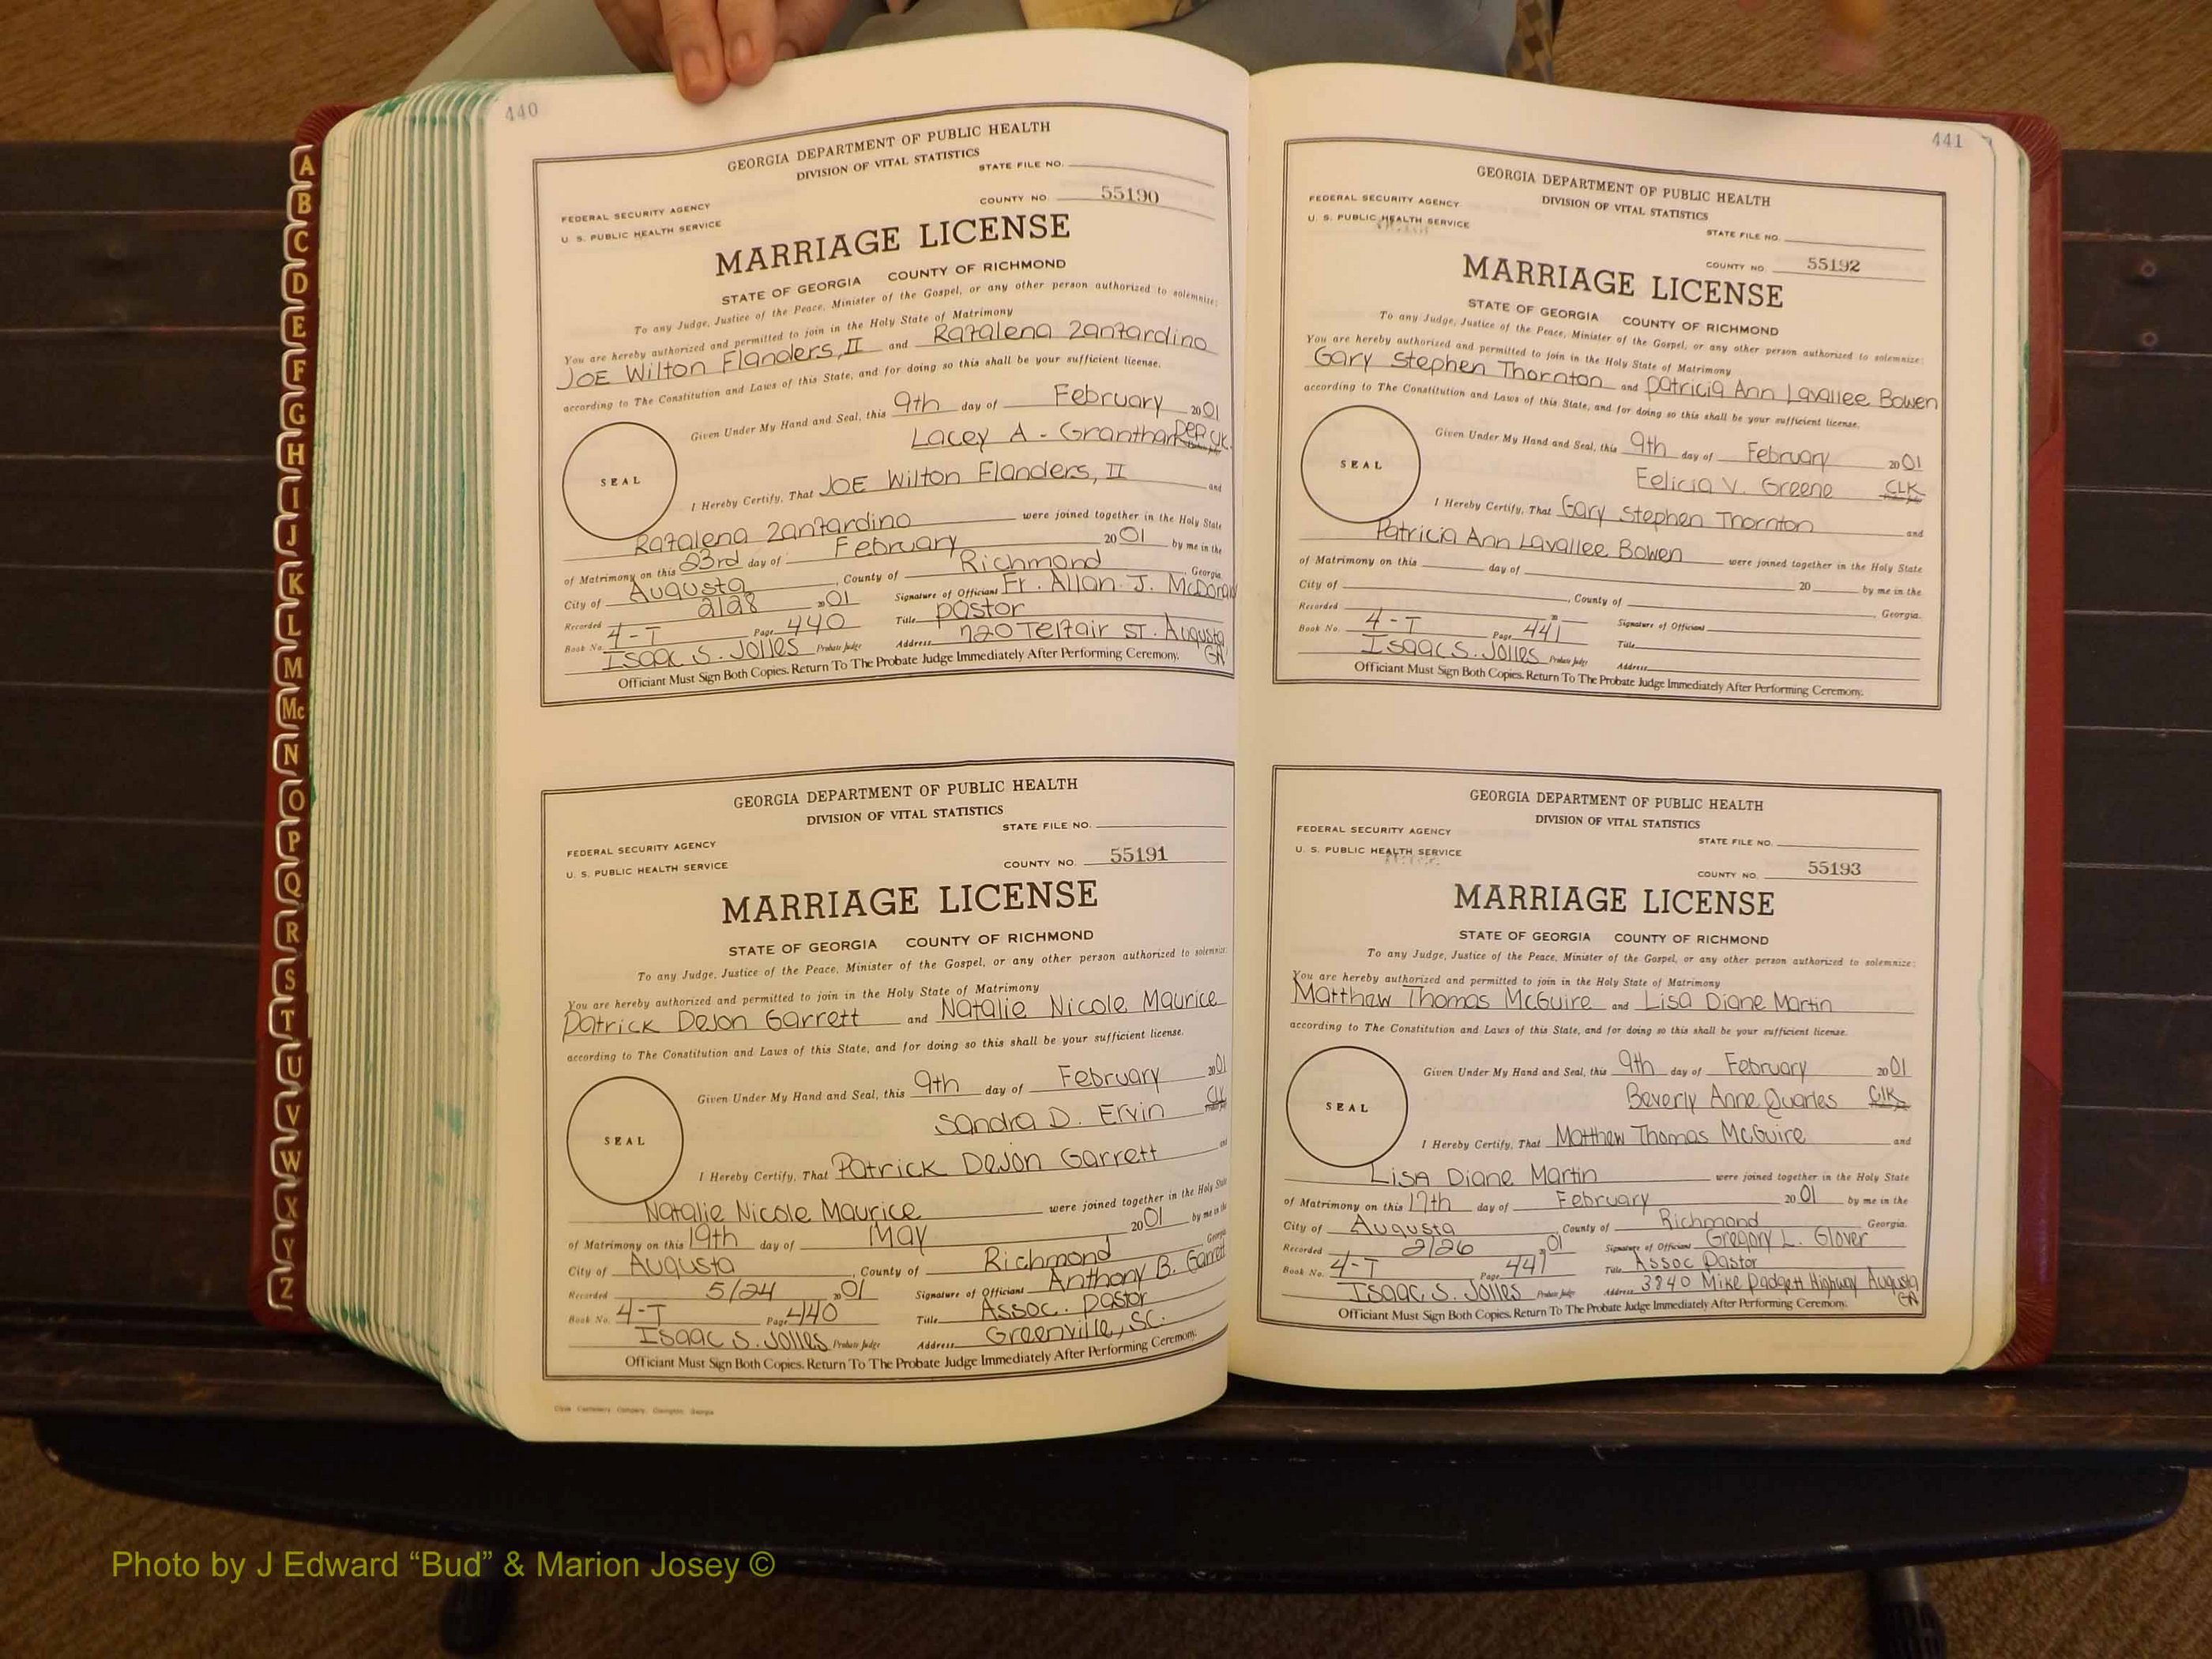 A
B
C
D
E
F
G
H
I
J
K
L
M
Mc
N
O
P
Q
R
S
T
U
V
W
X
Y
Z
440
GEORGIA DEPARTMENT OF PUBLIC HEALTH
DIVISION OF VITAL STATISTICS
STATE FILE NO.
FEDERAL SECURITY AGENCY
U. S. PUBLIC HEALTH SERVICE
COUNTY NO. 55190
MARRIAGE LICENSE
STATE OF GEORGIA COUNTY OF RICHMOND
To any Judge, Justice of the Peace, Minister of the Gospel, or any other person authorized to solemnize:
You are hereby authorized and permitted to join in the Holy State of Matrimony
JOE Wilton Flanders, II and Rafalena Zanfardino
according to The Constitution and Laws of this State, and for doing so this shall be your sufficient license.
Given Under My Hand and Seal, this 9th day of February 2001
Lacey A - Grantham Dep Clk.
SEAL
I Hereby Certify, That JOE Wilton Flanders, II and
Rafalena Zanfardino were joined together in the Holy State
of Matrimony on this 23rd day of February 2001 by me in the
City of Augusta, County of Richmond Georgia.
Recorded 2/28 2001 Signature of Officiant Fr. Allan J.
Book No. 4-T Page 440 Title Pastor
Isaac S. Jolles Probate Judge Address 720 Telfair ST. Augusta GA
Officiant Must Sign Both Copies. Return To The Probate Judge Immediately After Performing Ceremony.
GEORGIA DEPARTMENT OF PUBLIC HEALTH
DIVISION OF VITAL STATISTICS
STATE FILE NO.
FEDERAL SECURITY AGENCY
U. S. PUBLIC HEALTH SERVICE
COUNTY NO. 55191
MARRIAGE LICENSE
STATE OF GEORGIA COUNTY OF RICHMOND
To any Judge, Justice of the Peace, Minister of the Gospel, or any other person authorized to solemnize:
You are hereby authorized and permitted to join in the Holy State of Matrimony
Patrick DeJon Garrett and Natalie Nicole Maurice
according to The Constitution and Laws of this State, and for doing so this shall be your sufficient license.
Given Under My Hand and Seal, this 9th day of February 2001
Sandra D. Ervin Clk
SEAL
I Hereby Certify, That Patrick DeJon Garrett and
Natalie Nicole Maurice were joined together in the Holy State
of Matrimony on this 19th day of May 2001 by me in the
City of Augusta, County of Richmond Georgia
Recorded 5/24 2001 Signature of Officiant Anthony B. Garrett
Book No. 4-T Page 440 Title Assoc. Pastor
Isaac S. Jolles Probate Judge Address Greenville, SC.
Officiant Must Sign Both Copies. Return To The Probate Judge Immediately After Performing Ceremony.
441
GEORGIA DEPARTMENT OF PUBLIC HEALTH
DIVISION OF VITAL STATISTICS
FEDERAL SECURITY AGENCY
U. S. PUBLIC HEALTH SERVICE
STATE FILE NO.
COUNTY NO. 55192
MARRIAGE LICENSE
STATE OF GEORGIA COUNTY OF RICHMOND
To any Judge, Justice of the Peace, Minister of the Gospel, or any other person authorized to solemnize:
You are hereby authorized and permitted to join in the Holy State of Matrimony
Gary Stephen Thornton and Patricia Ann Lavallee Bowen
according to The Constitution and Laws of this State, and for doing so this shall be your sufficient license.
Given Under My Hand and Seal, this 9th day of February 2001
Felicia V. Greene CLK
SEAL
I Hereby Certify, That Gary Stephen Thornton and
Patricia Ann Lavallee Bowen were joined together in the Holy State
of Matrimony on this day of 20 by me in the
City of , County of Georgia.
Recorded 20 Signature of Officiant
Book No. 4-T Page 441 Title
Isaac S. Jolles Probate Judge Address
Officiant Must Sign Both Copies. Return To The Probate Judge Immediately After Performing Ceremony.
GEORGIA DEPARTMENT OF PUBLIC HEALTH
DIVISION OF VITAL STATISTICS
FEDERAL SECURITY AGENCY
U. S. PUBLIC HEALTH SERVICE
STATE FILE NO.
COUNTY NO. 55193
MARRIAGE LICENSE
STATE OF GEORGIA COUNTY OF RICHMOND
To any Judge, Justice of the Peace, Minister of the Gospel, or any other person authorized to solemnize:
You are hereby authorized and permitted to join in the Holy State of Matrimony
Matthew Thomas McGuire and Lisa Diane Martin
according to The Constitution and Laws of this State, and for doing so this shall be your sufficient license.
Given Under My Hand and Seal, this 9th day of February 2001
Beverly Anne Quarles Clk
SEAL
I Hereby Certify, That Matthew Thomas McGuire and
Lisa Diane Martin were joined together in the Holy State
of Matrimony on this 17th day of February 2001 by me in the
City of Augusta, County of Richmond Georgia.
Recorded 2/26 2001 Signature of Officiant Gregory L. Glover
Book No. 4-T Page 441 Title Assoc Pastor
Isaac S. Jolles Probate Judge Address 3840 Mike Padgett Highway Augusta GA
Officiant Must Sign Both Copies. Return To The Probate Judge Immediately After Performing Ceremony.
Photo by J Edward “Bud” & Marion Josey ©